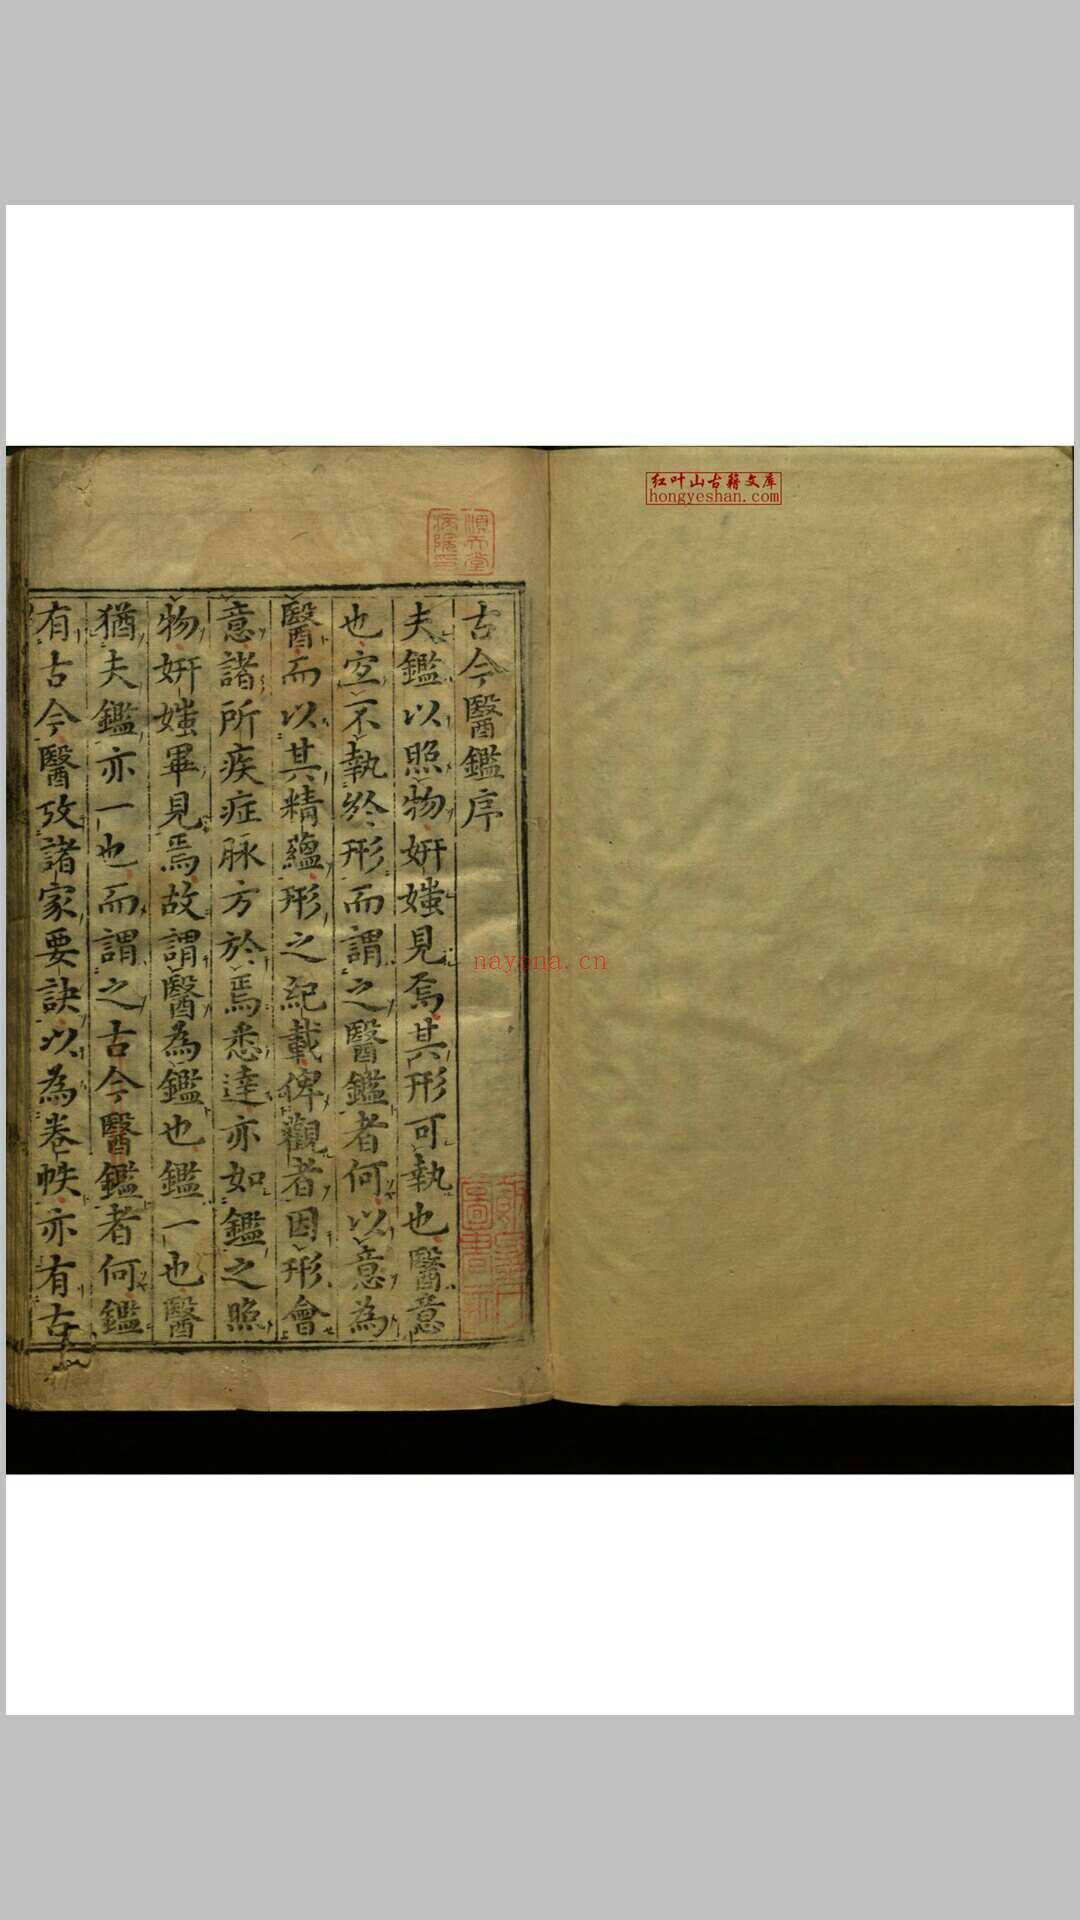 红叶山古籍文库
hongyeshan.com
順天堂
古今醫鑑序
夫鑑以照物妍媸見焉其形可執也醫意
也宜不執於形而謂之醫鑑者何以意為
醫而以其精蘊形之紀載俾觀者因形會
意諸所疾症脉方於焉悉達亦如鑑之照
物妍媸畢見焉故謂醫為鑑也鑑一也醫
猶夫鑑亦一也而謂之古今醫鑑者何鑑
有古今醫攷諸家要訣以為卷帙亦有古
圖書
nayona.cn